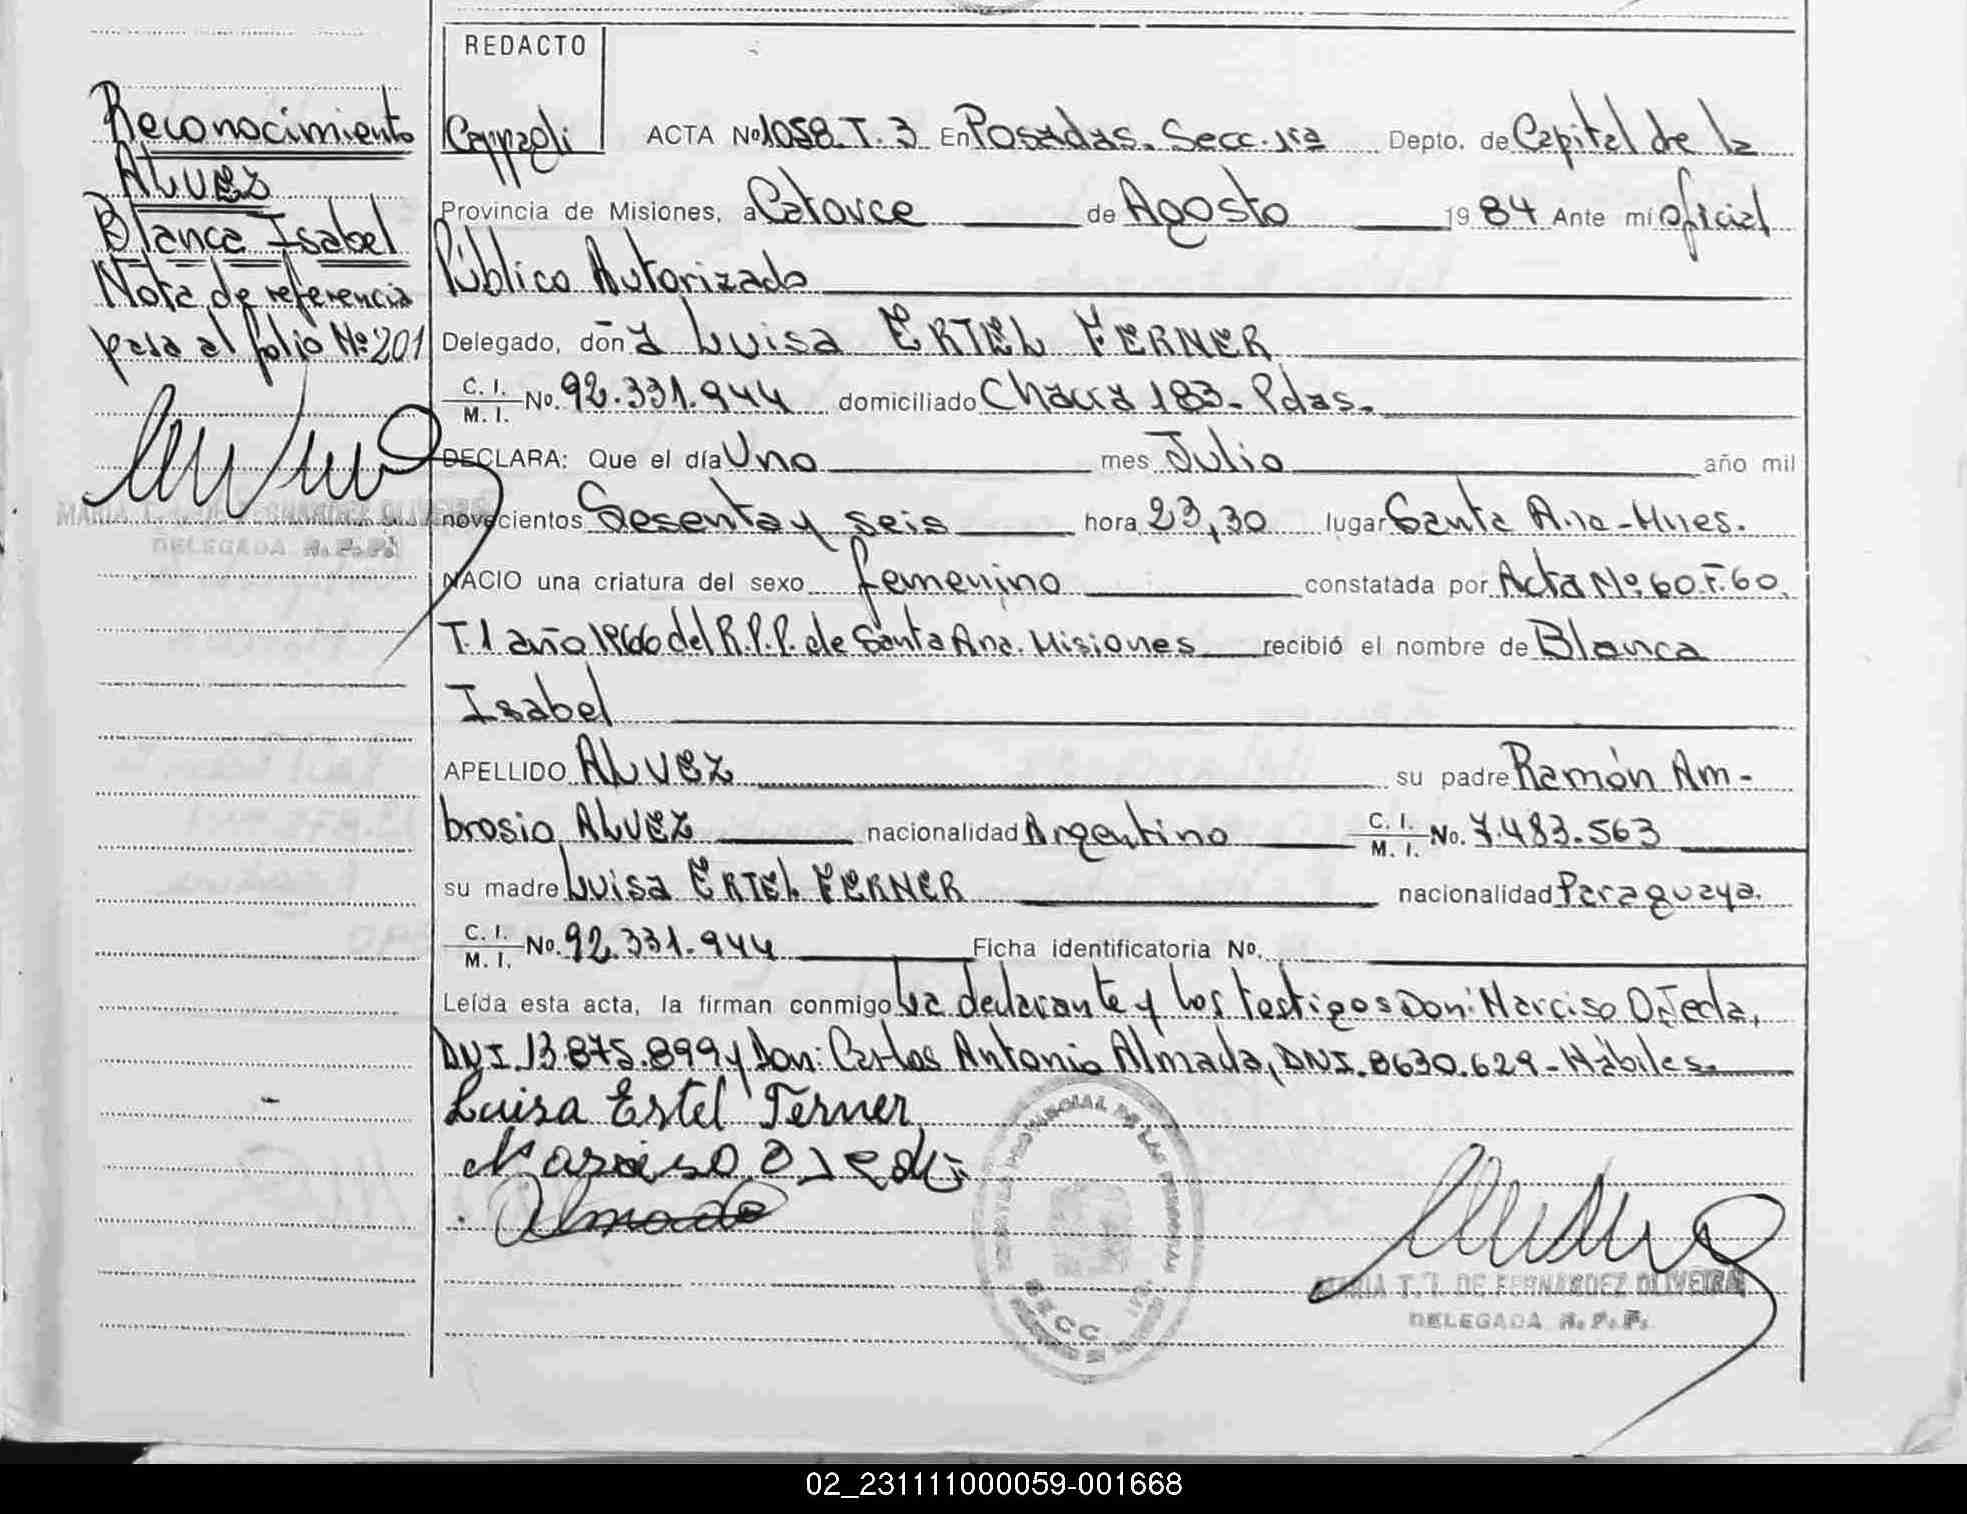 REDACTO
Reconocimiento
ALVEZ
Blanca Isabel
Nota de referencia
pasa al folio Nº 201
Cappagli
ACTA Nº 1058. T. 3 En Posadas. Secc. 1ra Depto. de Capital de la
Provincia de Misiones, a Catorce de Agosto 1984 Ante mi oficial
Público Autorizado
Delegado, don a Luisa ERTEL FERNER
C. I. / M. I. No. 92.331.944 domiciliado Chacra 183 - Pdas.
DECLARA: Que el día Uno mes Julio año mil
novecientos Sesenta y seis hora 23,30 lugar Santa Ana - Mnes.
NACIO una criatura del sexo femenino constatada por Acta Nº 60. F. 60.
T. 1 año 1966 del R.P.P. de Santa Ana. Misiones recibió el nombre de Blanca
Isabel
APELLIDO ALVEZ su padre Ramón Am-
brosio ALVEZ nacionalidad Argentino C. I. / M. I. No. 7.483.563
su madre Luisa ERTEL FERNER nacionalidad Paraguaya.
C. I. / M. I. No. 92.331.944 Ficha identificatoria No.
Leída esta acta, la firman conmigo la declarante y los testigos Don: Narciso Ojeda,
DNI. 13.875.899 y Don: Carlos Antonio Almada, DNI. 8630.629 - Hábiles.
Luisa Estel Ferner
Narciso Ojeda
Almada
MARIA T. J. DE FERNANDEZ OLIVEIRA
DELEGADA R. P. P.
MARIA T. J. DE FERNANDEZ OLIVEIRA
DELEGADA R. P. P.
02_231111000059-001668